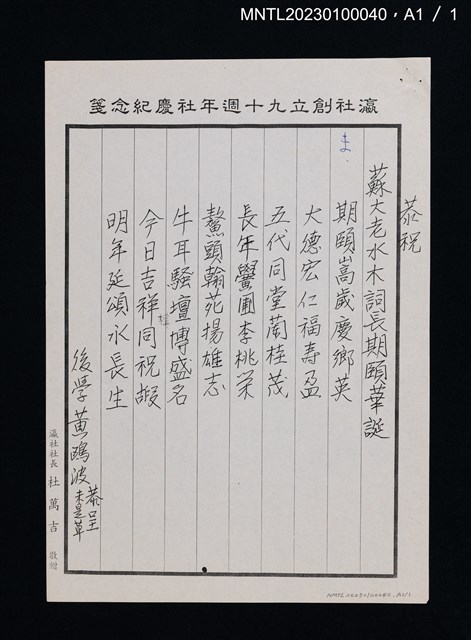 MNTL20230100040, A1 / 1
瀛社創立九十週年社慶紀念箋
恭祝
蘇大老水木詞長期頤華誕
期頤嵩歲慶鄉英
大德宏仁福壽盈
五代同堂蘭桂茂
長年黌圃李桃荣
鰲頭翰苑揚雄志
牛耳騷壇博盛名
今日吉祥同祝嘏
明年延頌永長生
後學黃鷗波恭呈
未是草
瀛社社長 杜萬吉 敬贈
MNTL20230100040, A1/1